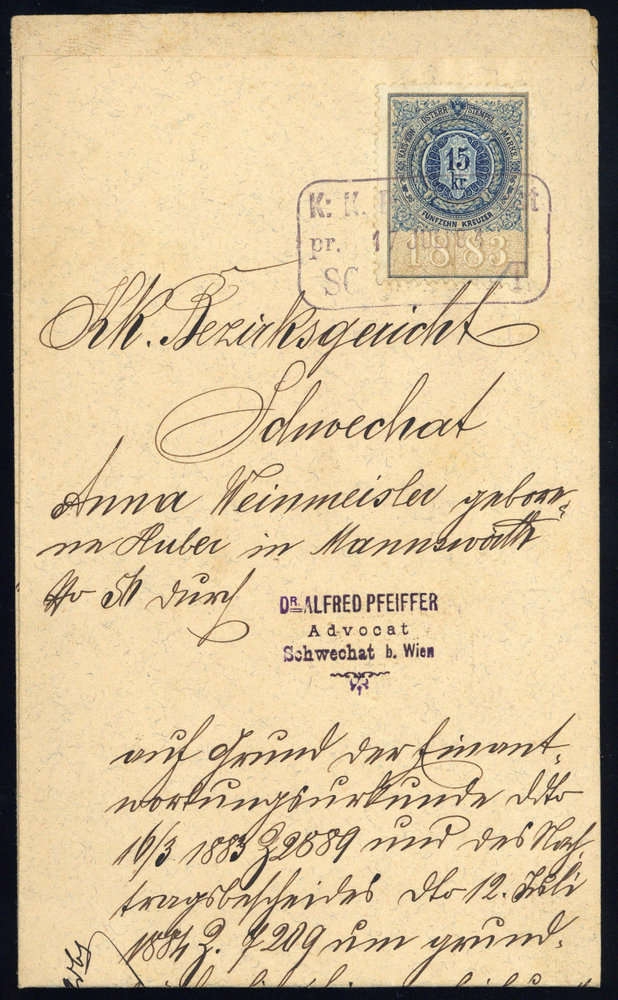 ÖSTERR. STEMPEL MARKE
15
Kr
FÜNFZEHN KREUZER
1883
K: K.
pr.
KK. Bezirksgericht
Schwechat
Anna Weinmeisler gebore-
ne Huber in Mannswörth
No durch
DR. ALFRED PFEIFFER
Advocat
Schwechat b. Wien
auf Grund der Einant-
wortungsurkunde ddto
16/3 1883 Z 2889 und des Nach-
tragsbescheides dto 12. Juli
1884 Z. 7209 um grund-